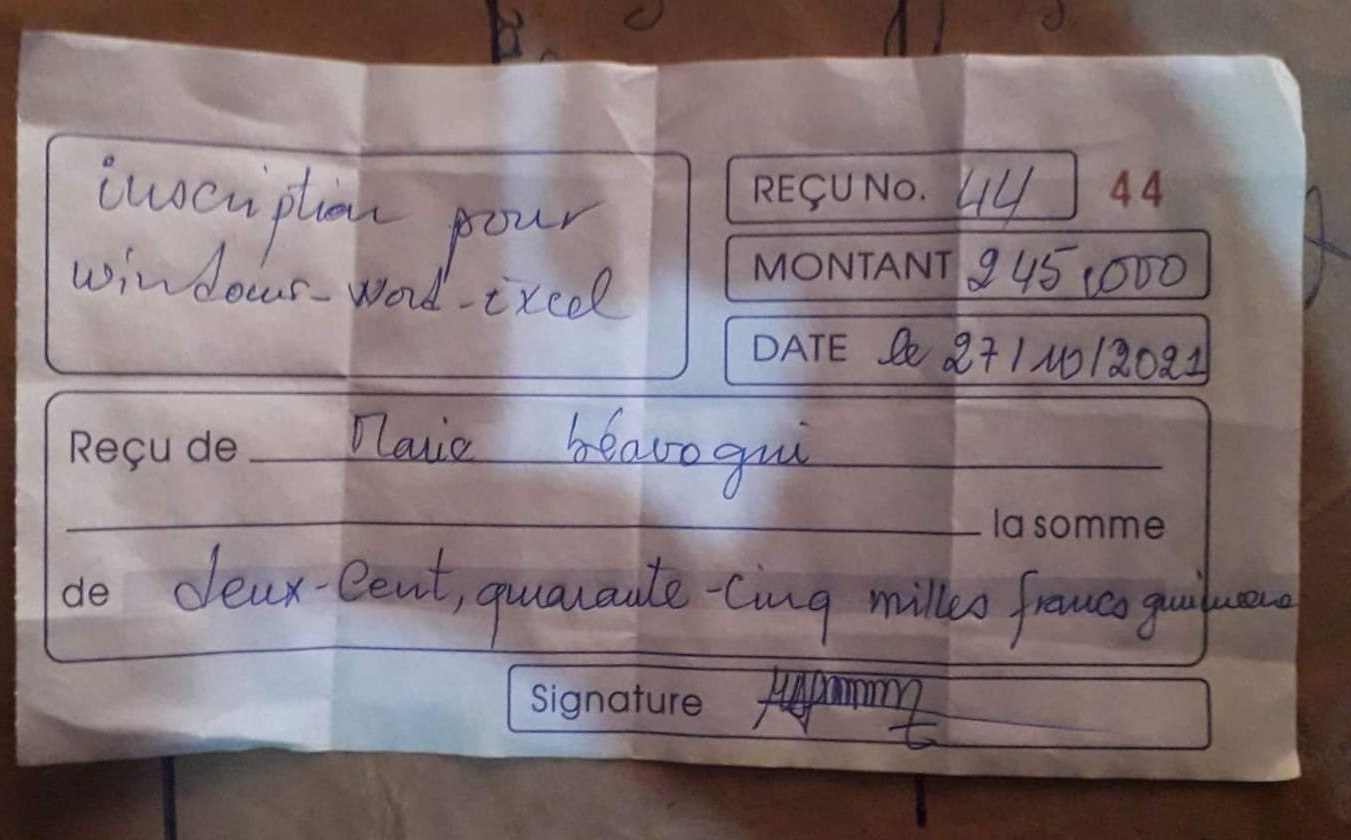 inscription pour
windows-Word-Excel
REÇU No. 44 44
MONTANT 245,000
DATE le 27/10/2021
Reçu de Marie béavogui
la somme
de deux-Cent, quarante-Cinq milles francs guinéens
Signature